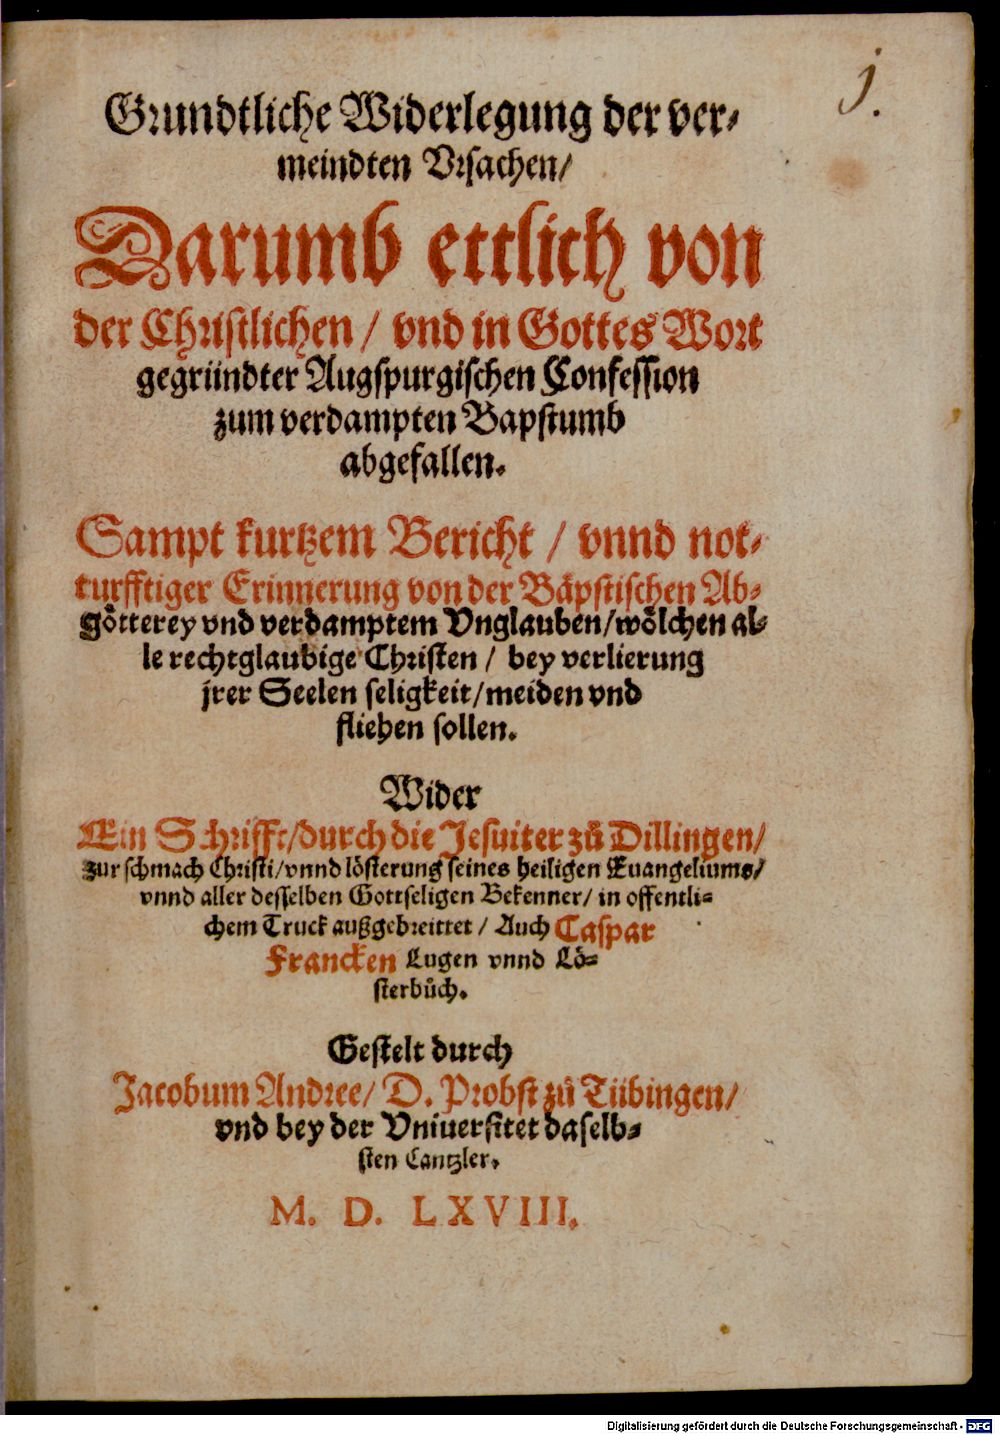 j.
Grundtliche Widerlegung der ver⸗
meindten Vrsachen/
Darumb ettlich von
der Christlichen / vnd in Gottes Wort
gegründter Augspurgischen Confession
zum verdampten Bapstumb
abgefallen.
Sampt kurtzem Bericht / vnnd not⸗
turfftiger Erinnerung von der Bäpstischen Ab⸗
götterey vnd verdamptem Vnglauben/wölchen al⸗
le rechtglaubige Christen / bey verlierung
jrer Seelen seligkeit/meiden vnd
fliehen sollen.
Wider
Ein Schrifft/durch die Jesuiter zů Dillingen/
zur schmach Christi/vnnd lösterung seines heiligen Euangeliums/
vnnd aller desselben Gottseligen Bekenner/ in offentli⸗
chem Truck außgebreittet / Auch Caspar
Francken Lugen vnnd Lö⸗
sterbůch.
Gestelt durch
Jacobum Andree/ D. Probst zů Tübingen/
vnd bey der Vniuersitet daselb⸗
sten Cantzler.
M. D. LXVIII.
Digitalisierung gefördert durch die Deutsche Forschungsgemeinschaft - DFG